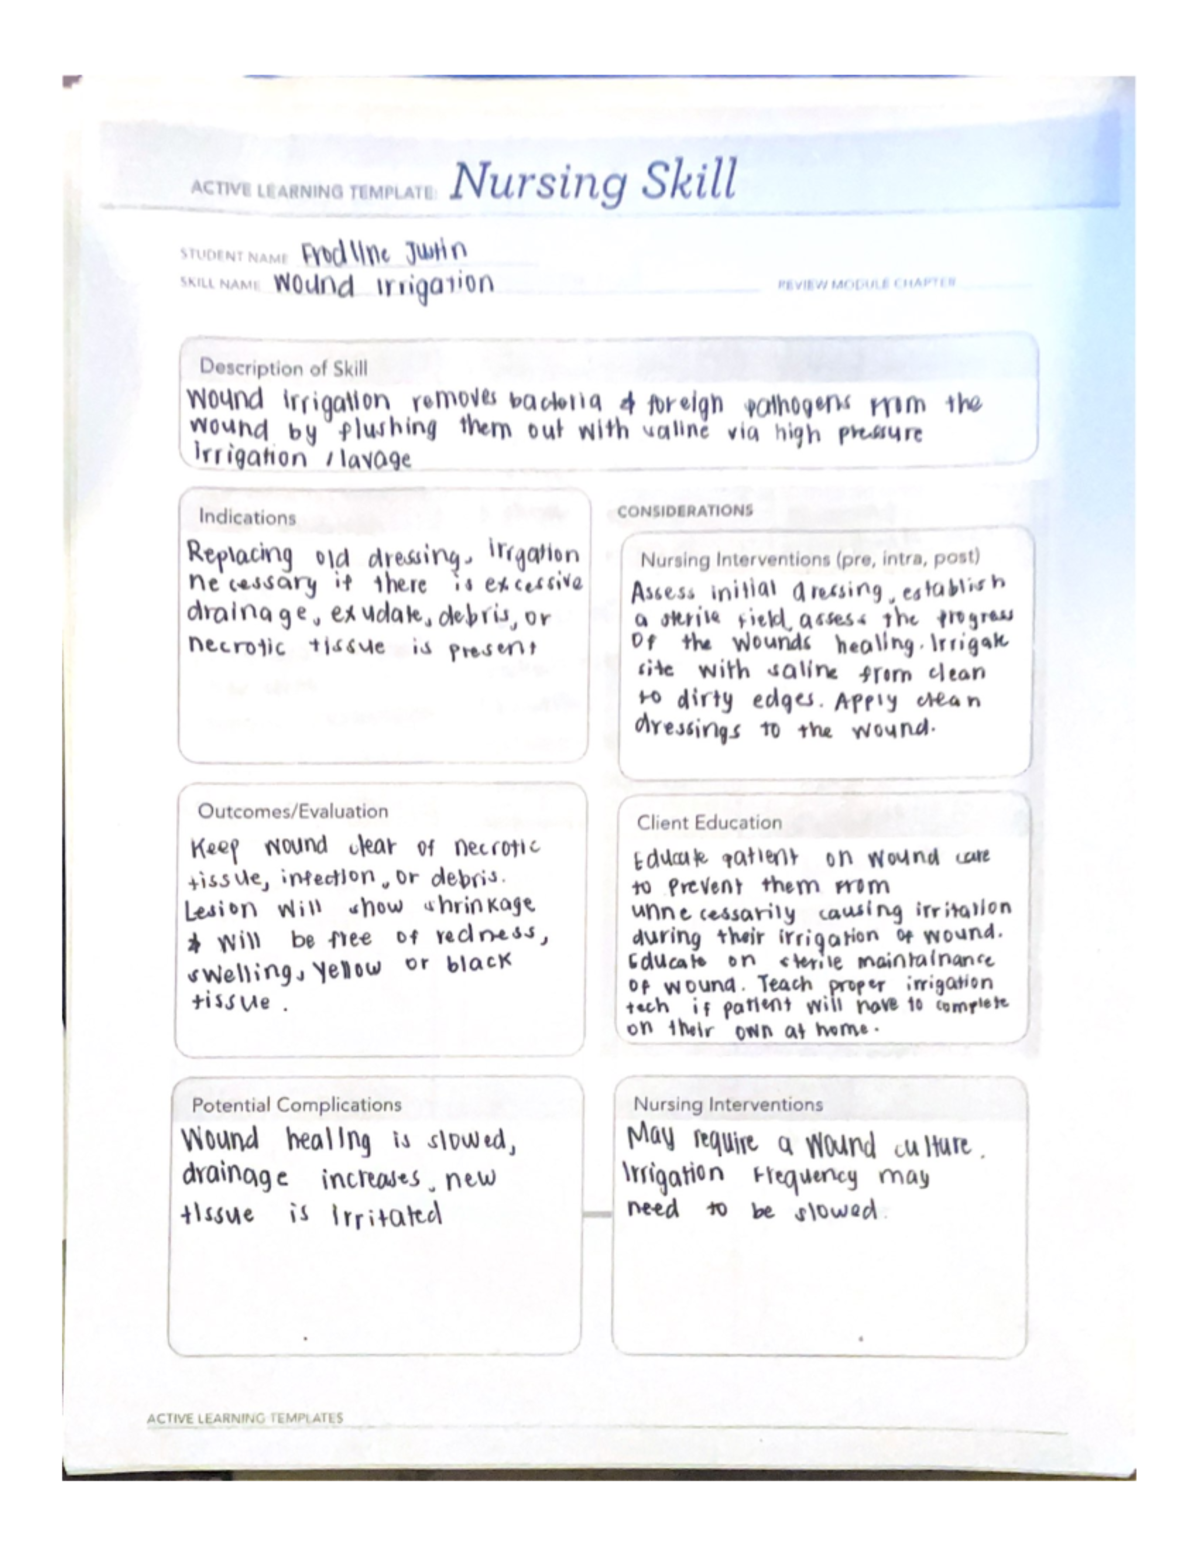 ACTIVE LEARNING TEMPLATE: Nursing Skill
STUDENT NAME Frodline Justin
SKILL NAME Wound Irrigation
REVIEW MODULE CHAPTER
Description of Skill
Wound irrigation removes bacteria & foreign pathogens from the
wound by flushing them out with saline via high pressure
irrigation / lavage
Indications
Replacing old dressing, irrgation
necessary if there is excessive
drainage, exudate, debris, or
necrotic tissue is present
CONSIDERATIONS
Nursing Interventions (pre, intra, post)
Assess initial dressing, establish
a sterile field, assess the progress
of the wounds healing. Irrigate
site with saline from clean
to dirty edges. Apply clean
dressings to the wound.
Outcomes/Evaluation
Keep wound clear of necrotic
tissue, infection, or debris.
Lesion will show shrinkage
& will be free of redness,
swelling, yellow or black
tissue.
Client Education
Educate patient on wound care
to prevent them from
unnecessarily causing irritation
during their irrigation of wound.
Educate on sterile maintainance
of wound. Teach proper irrigation
tech if patient will have to complete
on their own at home.
Potential Complications
Wound healing is slowed,
drainage increases, new
tissue is irritated
Nursing Interventions
May require a wound culture.
Irrigation frequency may
need to be slowed.
ACTIVE LEARNING TEMPLATES